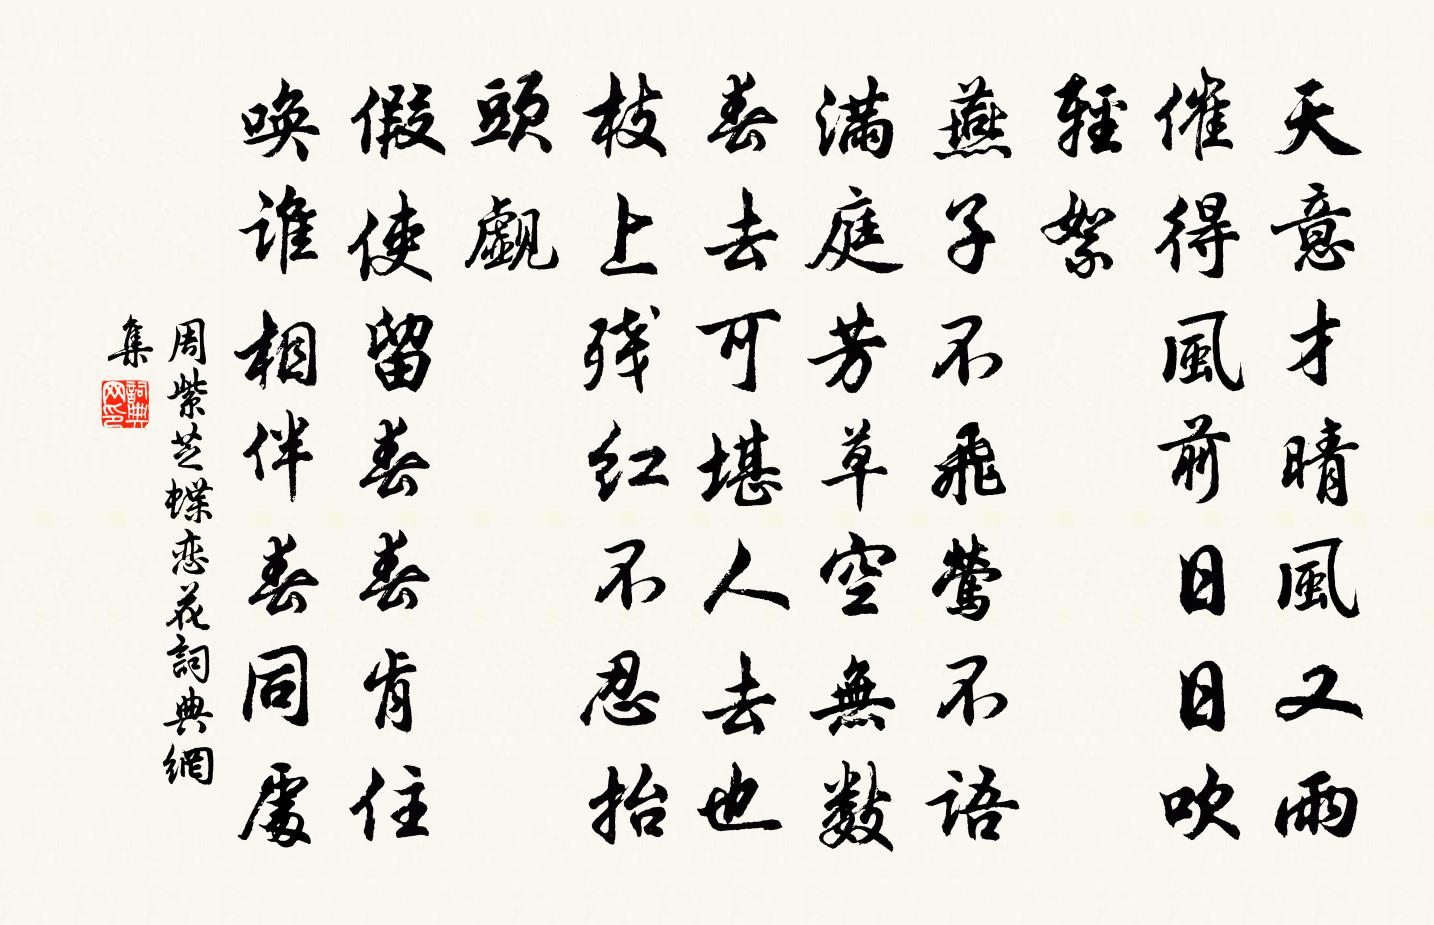 天意才晴風又雨
催得風前日日吹
輕絮
燕子不飛鶯不語
滿庭芳草空無數
春去可堪人去也
枝上残红不忍抬
頭覷
假使留春春肯住
喚谁相伴春同處
周紫芝蝶恋花詞典網
集
詞典